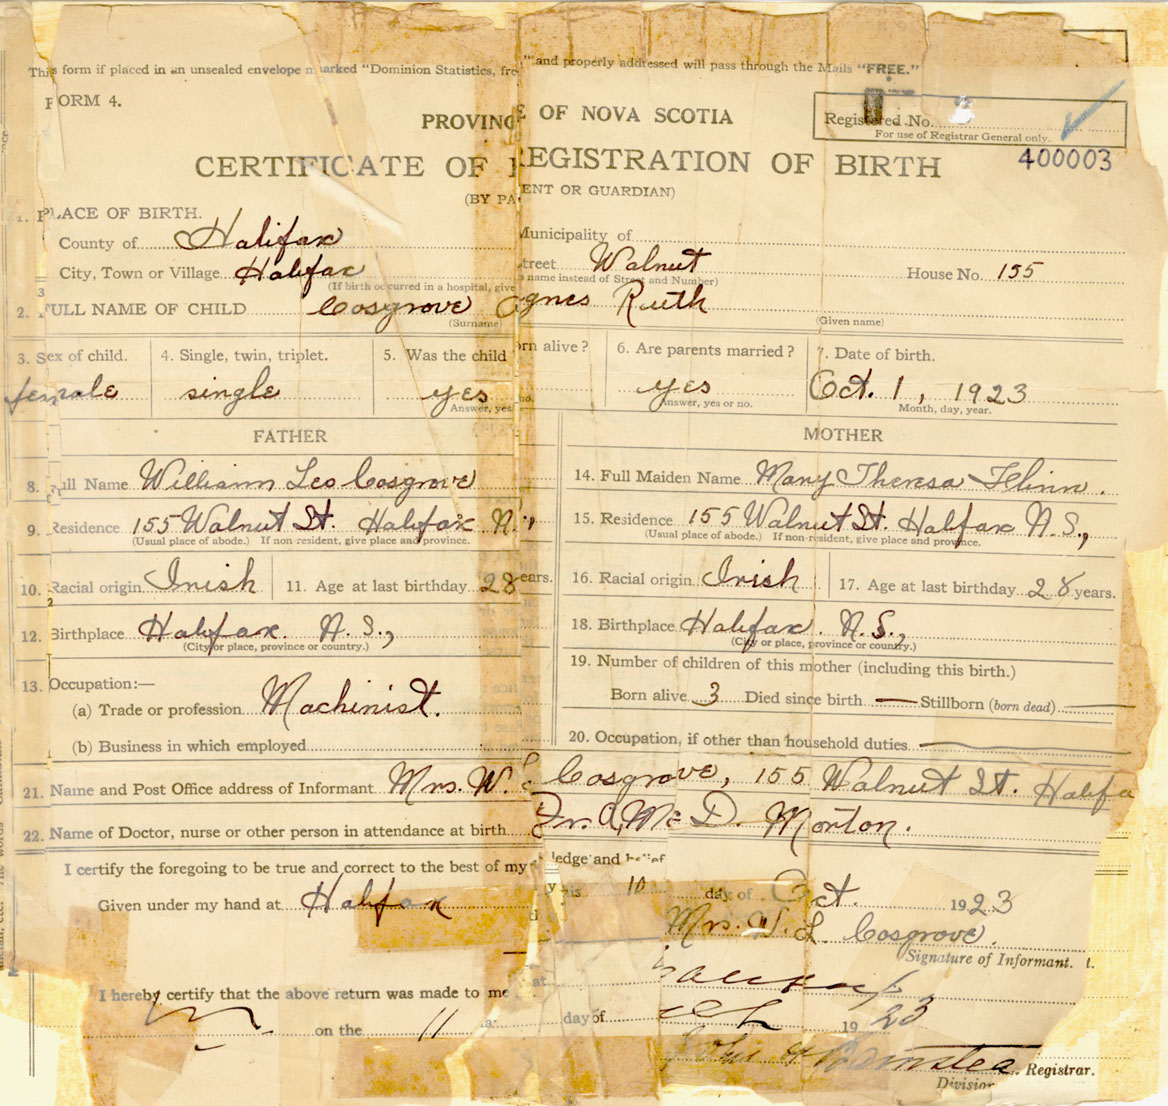 This form if placed in an unsealed envelope marked "Dominion Statistics, fre "and properly addressed will pass through the Mails "FREE."
FORM 4.
PROVINCE OF NOVA SCOTIA
Registered No.
For use of Registrar General only.
CERTIFICATE OF REGISTRATION OF BIRTH
400003
(BY PARENT OR GUARDIAN)
1. PLACE OF BIRTH.
County of Halifax Municipality of
City, Town or Village Halifax Street Walnut House No. 155
(If birth occurred in a hospital, give name instead of Street and Number)
2. FULL NAME OF CHILD Cosgrove Agnes Ruth
(Surname) (Given name)
3. Sex of child. 4. Single, twin, triplet. 5. Was the child born alive? 6. Are parents married? 7. Date of birth.
female single yes yes Oct. 1, 1923
Answer, yes no. Answer, yes or no. Month, day, year.
FATHER MOTHER
8. Full Name William Leo Cosgrove
14. Full Maiden Name Mary Theresa Flinn.
9. Residence 155 Walnut St. Halifax N.,
(Usual place of abode.) If non-resident, give place and province.
15. Residence 155 Walnut St. Halifax N.S.,
(Usual place of abode.) If non-resident, give place and province.
10. Racial origin Irish 11. Age at last birthday 28 years.
16. Racial origin Irish 17. Age at last birthday 28 years.
12. Birthplace Halifax. N.S.,
(City or place, province or country.)
18. Birthplace Halifax. N.S.,
(City or place, province or country.)
13. Occupation:—
(a) Trade or profession Machinist.
(b) Business in which employed
19. Number of children of this mother (including this birth.)
Born alive 3 Died since birth — Stillborn (born dead) —
20. Occupation, if other than household duties —
21. Name and Post Office address of Informant Mrs. W. L Cosgrove, 155 Walnut St. Halifa
22. Name of Doctor, nurse or other person in attendance at birth Dr. A. Mc D. Morton.
I certify the foregoing to be true and correct to the best of my ledge and belief
Given under my hand at Halifax this 10 day of Oct. 1923
Mrs. W. L Cosgrove.
Signature of Informant.
I hereby certify that the above return was made to me at
on the 11 day of 1923
Registrar.
Division